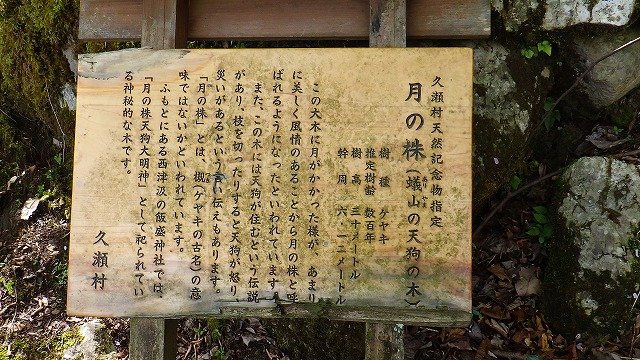 久瀬村天然記念物指定
月の株(蟻山の天狗の木)
樹種 ケヤキ
推定樹齢 数百年
樹高 三十メートル
幹周 六．一二メートル
この大木に月がかかった様が、あまり
に美しく風情のあることから月の株と呼
ばれるようになったといわれています。
また、この木には天狗が住むという伝説
があり、枝を切ったりすると天狗が怒り、
災いがあるという言い伝えもあります。
「月の株」とは、槻(ケヤキの古名)の意
味ではないかといわれています。
ふもとにある西津汲の飯盛神社では、
「月の株天狗大明神」として祀られてい
る神秘的な木です。
久瀬村